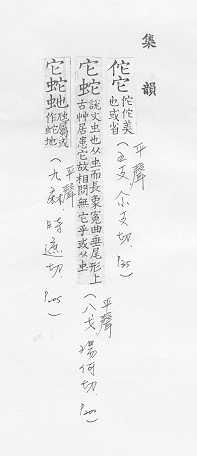 集韻
佗它 佗佗美
也或省
平聲
(五支 余支切. P.35)
它蛇 說文虫也从虫而長象冤曲垂尾形上
古艸居患它故相問無它乎或从虫
平聲
(八戈 湯何切. P.201)
它蛇虵
作蛇虵
平聲
(九麻 時遮切. P.205)